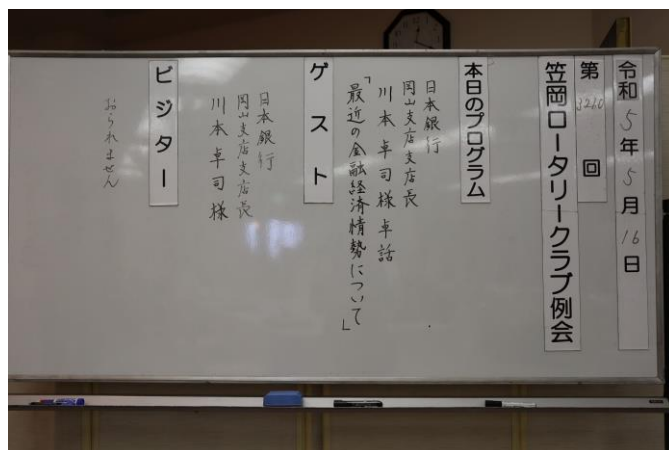 令和5年5月16日
第3260回
笠岡ロータリークラブ例会
本日のプログラム
日本銀行
岡山支店支店長
川本卓司様卓話
「最近の金融経済情勢について」
ゲスト
日本銀行
岡山支店支店長
川本卓司様
ビジター
おられません